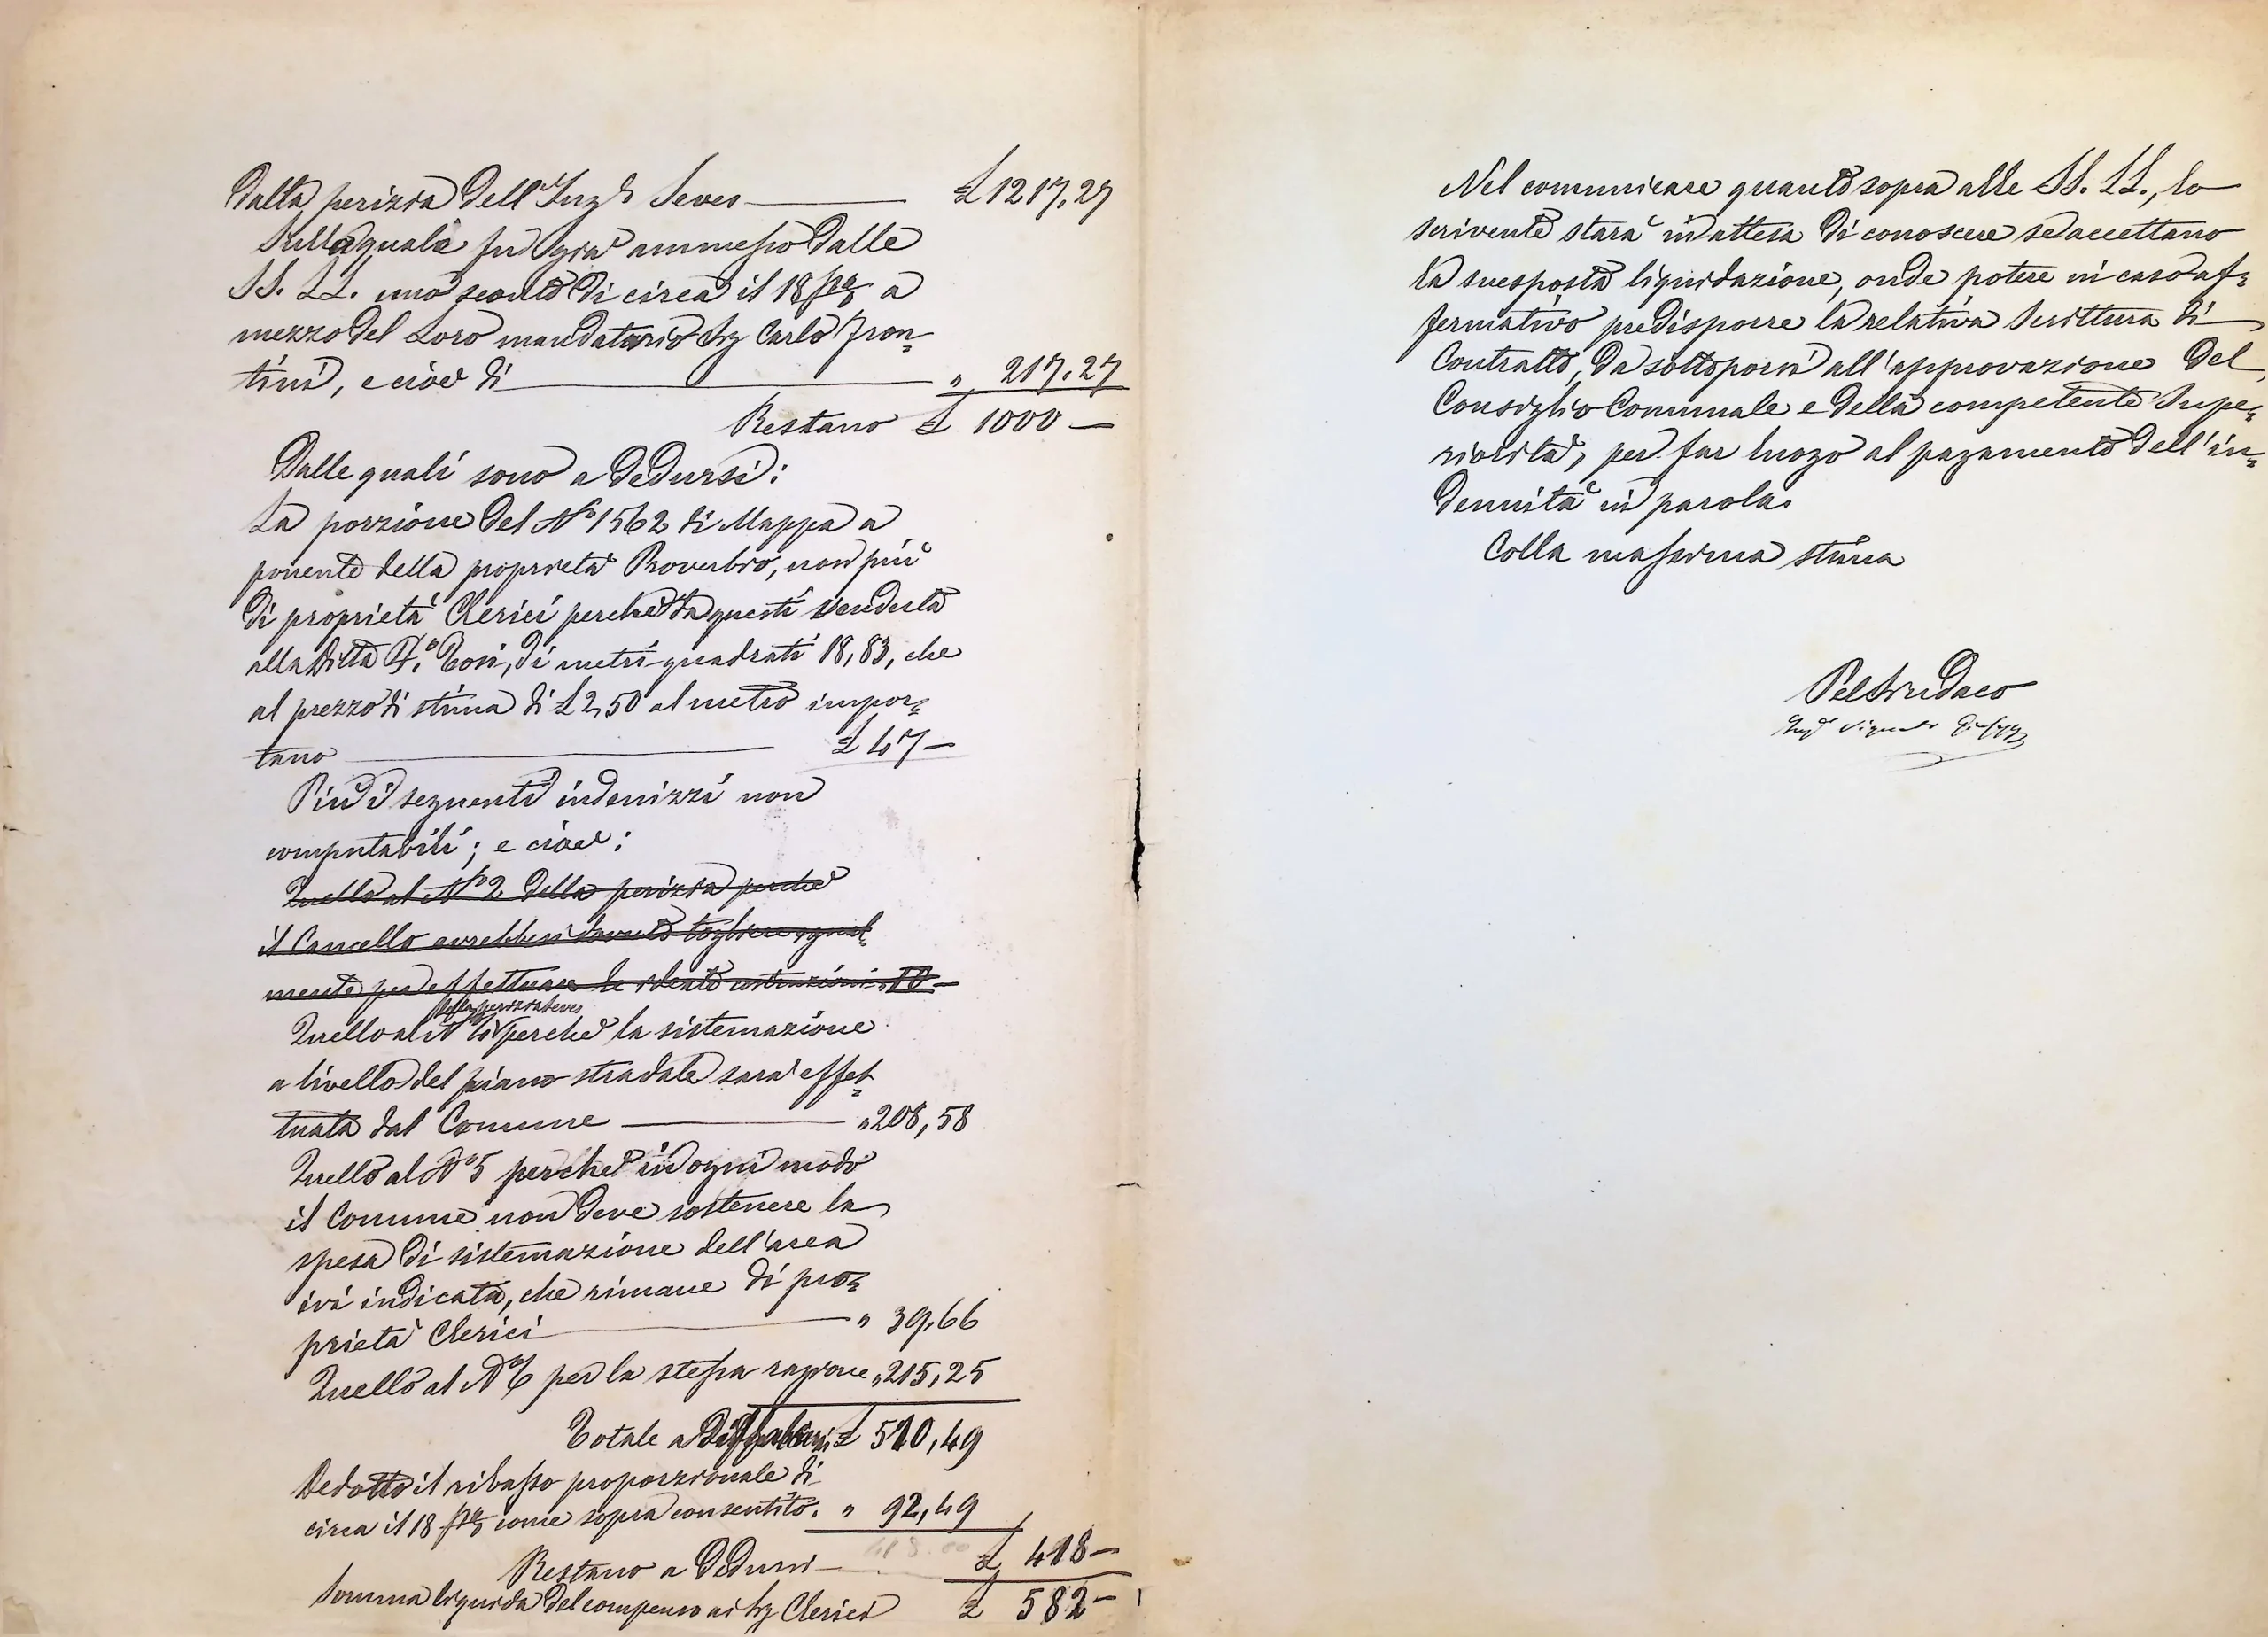 Dalla perizia dell'Ing.e Seves £ 1217,27
Sulla quale fu già ammesso dalle
SS. LL. uno sconto di circa il 18 p% a
mezzo del Loro mandatario Sig Carlo Fron=
tini, e cioè di " 217.27
Restano £ 1000 —
Dalle quali sono a dedursi:
La porzione del N° 1562 di Mappa a
ponente della proprietà Proverbio, non più
di proprietà Clerici perchè da questi venduta
alla Ditta F.co Tosi, di metri quadrati 18,83, che
al prezzo di stima di £ 2,50 al metro impor=
tano £ 47 —
Più i seguenti indenizzi non
computabili; e cioè:
Quello al N° 2 della perizia perchè
il Cancello avrebbesi dovuto togliere egual=
mente per effettuare le ideate costruzioni " 10 —
della perizia Seves
Quello al N° 4 perchè la sistemazione
a livello del piano stradale sarà effet=
tuata dal Comune " 208,58
Quello al N° 5 perchè in ogni modo
il Comune non deve sostenere la
spesa di sistemazione dell'area
ivi indicata, che rimane di pro=
prietà Clerici " 39,66
Quello al N° 6 per la stessa ragione " 215,25
Totale a £ 510,49
Dedotto il ribasso proporzionale di
circa il 18 p% come sopra consentito. " 92,49
Restano a dedursi 418.00 £ 418 —
Somma liquida del compenso ai Sig Clerici £ 582 —
Nel comunicare quanto sopra alle SS. LL., lo
scrivente starà in attesa di conoscere se accettano
la suesposta liquidazione, onde potere in caso af=
fermativo predisporre la relativa Scrittura di
Contratto, da sottoporsi all'approvazione del
Consiglio Comunale e della competente Supe=
riorità, per far luogo al pagamento dell'in=
dennità in parola.
Colla massima stima
Pel Sindaco